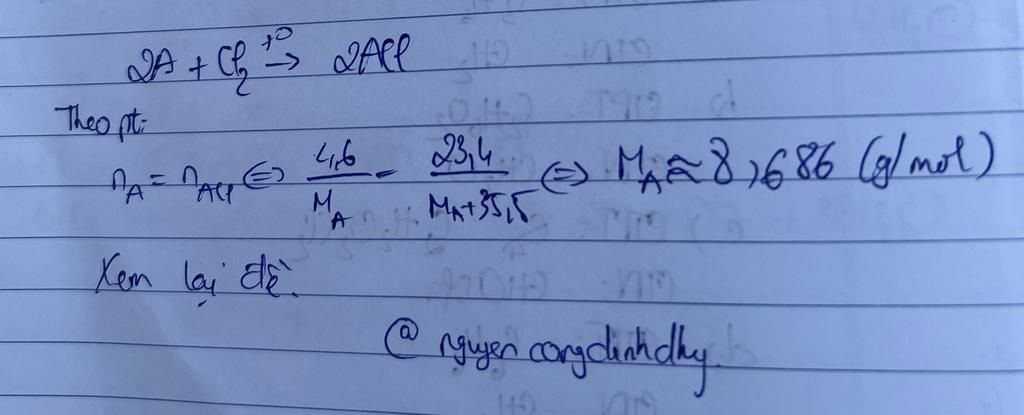 2A + Cl₂ →(t°) 2ACl
Theo pt:
n_A = n_ACl ⇔ 4,6/M_A = 23,4/(M_A+35,5) ⇔ M_A ≈ 8,686 (g/mol)
Xem lại đề.
@ nguyencongdinhdhy